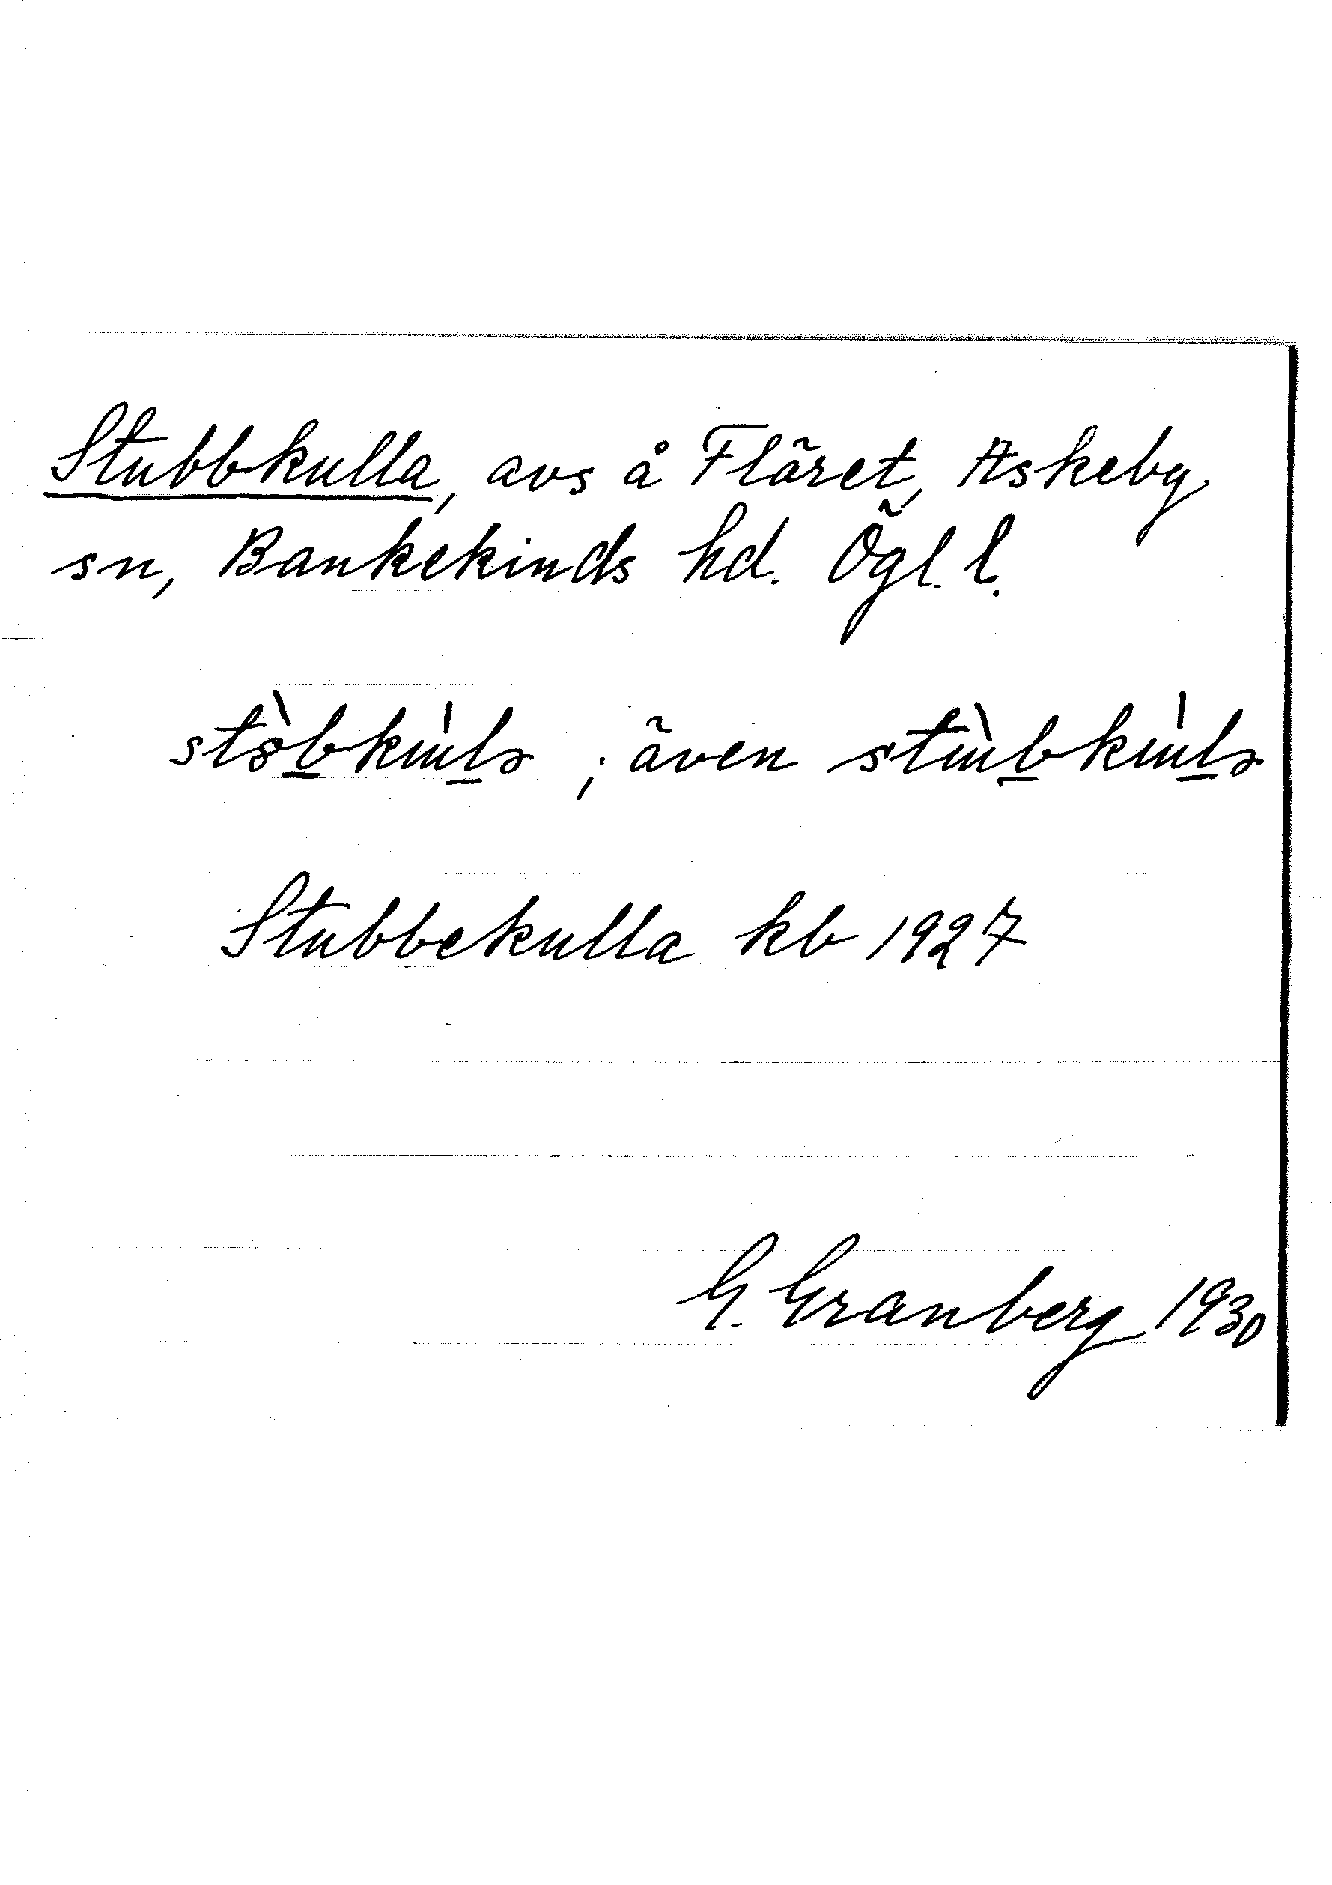 Stubbkulla, avs å Fläret, Askeby
sn, Bankekinds hd. Ögl. l.
; även
Stubbekulla kb 1927
G. Granberg 1930